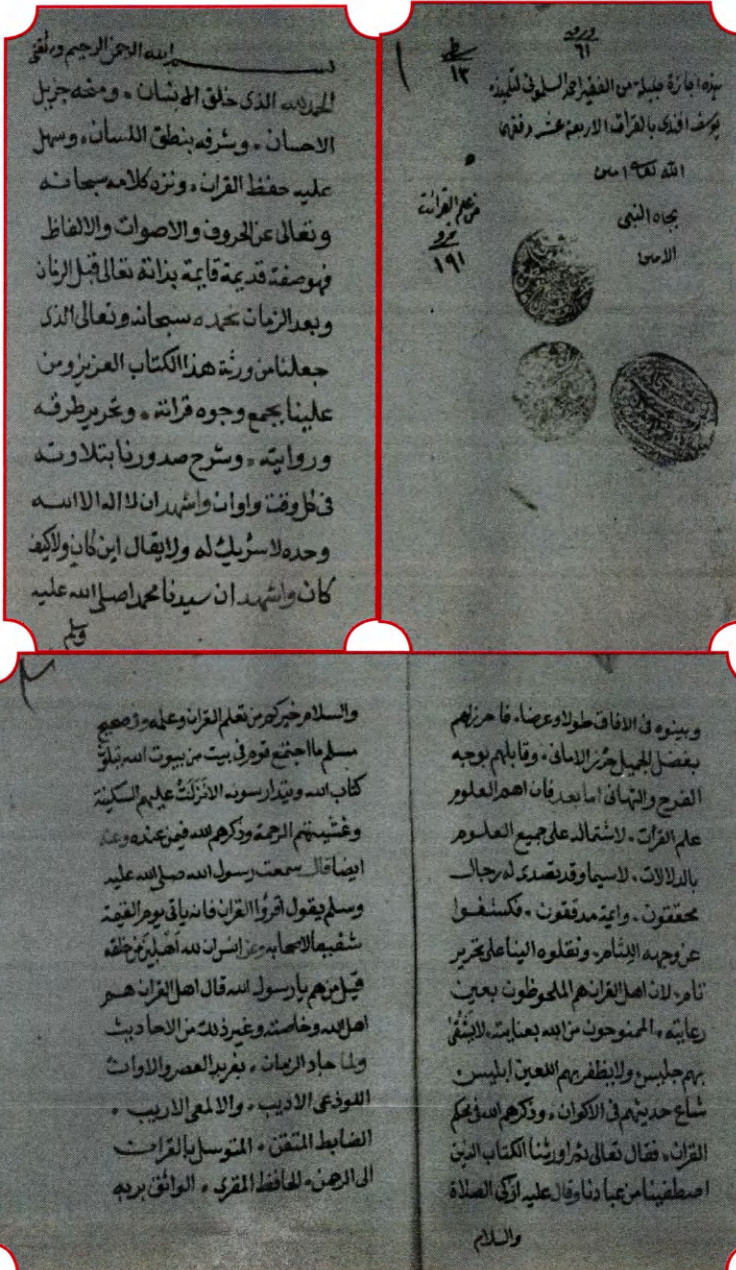 ورقه
٦١
هذه اجازة جليلة من الفقير احمد السلمونى لتلميذه
يوسف افندى بالقرأت الاربعة عشر وفقهما
الله تعالى امين
بجاه النبى
الامين
١٣
من علم القرائت
نمرو
١٩١
بسم الله الرحمن الرحيم وبه ثقتى
الحمد لله الذى خلق الانسان ۰ ومنحه جزيل
الاحسان ۰ وشرفه بنطق اللسان ۰ وسهل
عليه حفظ القران ۰ ونزه كلامه سبحانه
وتعالى عن الحروف والاصوات والالفاظ
فهو صفة قديمة قايمة بذاته تعالى قبل الزمان
وبعد الزمان نحمده سبحانه وتعالى الذى
جعلنا من ورثة هذا الكتاب العزيز ومن
علينا بجمع وجوه قراته ۰ وتحرير طرقه
وروايته ۰ وشرح صدورنا بتلاوته
فى كل وقت واوان واشهد ان لا اله الا الله
وحده لا شريك له ولا يقال اين كان ولا كيف
كان واشهد ان سيدنا محمدا صلى الله عليه
وسلم
وبينوه فى الافاق طولا وعرضا ۰ فاحرزلهم
بفضل الجميل حرز الامانى ۰ وقابلهم بوجه
الفرح والتهانى اما بعد فان اهم العلوم
علم القرآت ۰ لاشتماله على جميع العلوم
بالدلالات ۰ لاسيما وقد تصدى له رجال
محققون ۰ وايمة مدققون ۰ فكشفوا
عن وجهه اللثام ۰ ونقلوه الينا على تحرير
تام ۰ لان اهل القران هم الملحوظون بعين
رعايته ۰ الممنوحون من الله بعنايته ۰ لا يشقى
بهم جليس ولا يظفر بهم اللعين ابليس
شاع حديثهم فى الاكوان ۰ وذكرهم الله فى محكم
القران ۰ فقال تعالى ثم اورثنا الكتاب الذين
اصطفينا من عبادنا وقال عليه ازكى الصلاة
والسلام
والسلام خيركم من تعلم القران وعلمه وفى صحيح
مسلم ما اجتمع قوم فى بيت من بيوت الله يتلون
كتاب الله ويتدارسونه الا نَزَلَتْ عليهم السكينة
وغشيتهم الرحمة وذكرهم الله فيمن عنده وعنه
ايضا قال سمعت رسول الله صلى الله عليه
وسلم يقول اقرؤا القران فانه ياتى يوم القيمة
شفيعا لاصحابه وعن انس ان لله اهلين من خلقه
قيل من هم يا رسول الله قال اهل القران هم
اهل الله وخاصته وغير ذلك من الاحاديث
ولما جاد الزمان ۰ بفريد العصر والاوان
اللوذعى الاديب ۰ والالمعى الاريب ۰
الضابط المتقن ۰ المتوسل بالقرات
الى الرحمن ۰ الحافظ المقرى ۰ الواثق بربه